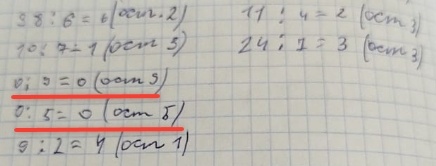 38 : 6 = 6 (ост. 2)
10 : 7 = 1 (ост 3)
0 : 9 = 0 (ост 9)
0 : 5 = 0 (ост 5)
9 : 2 = 4 (ост 1)
11 : 4 = 2 (ост 3)
24 : 7 = 3 (ост 3)